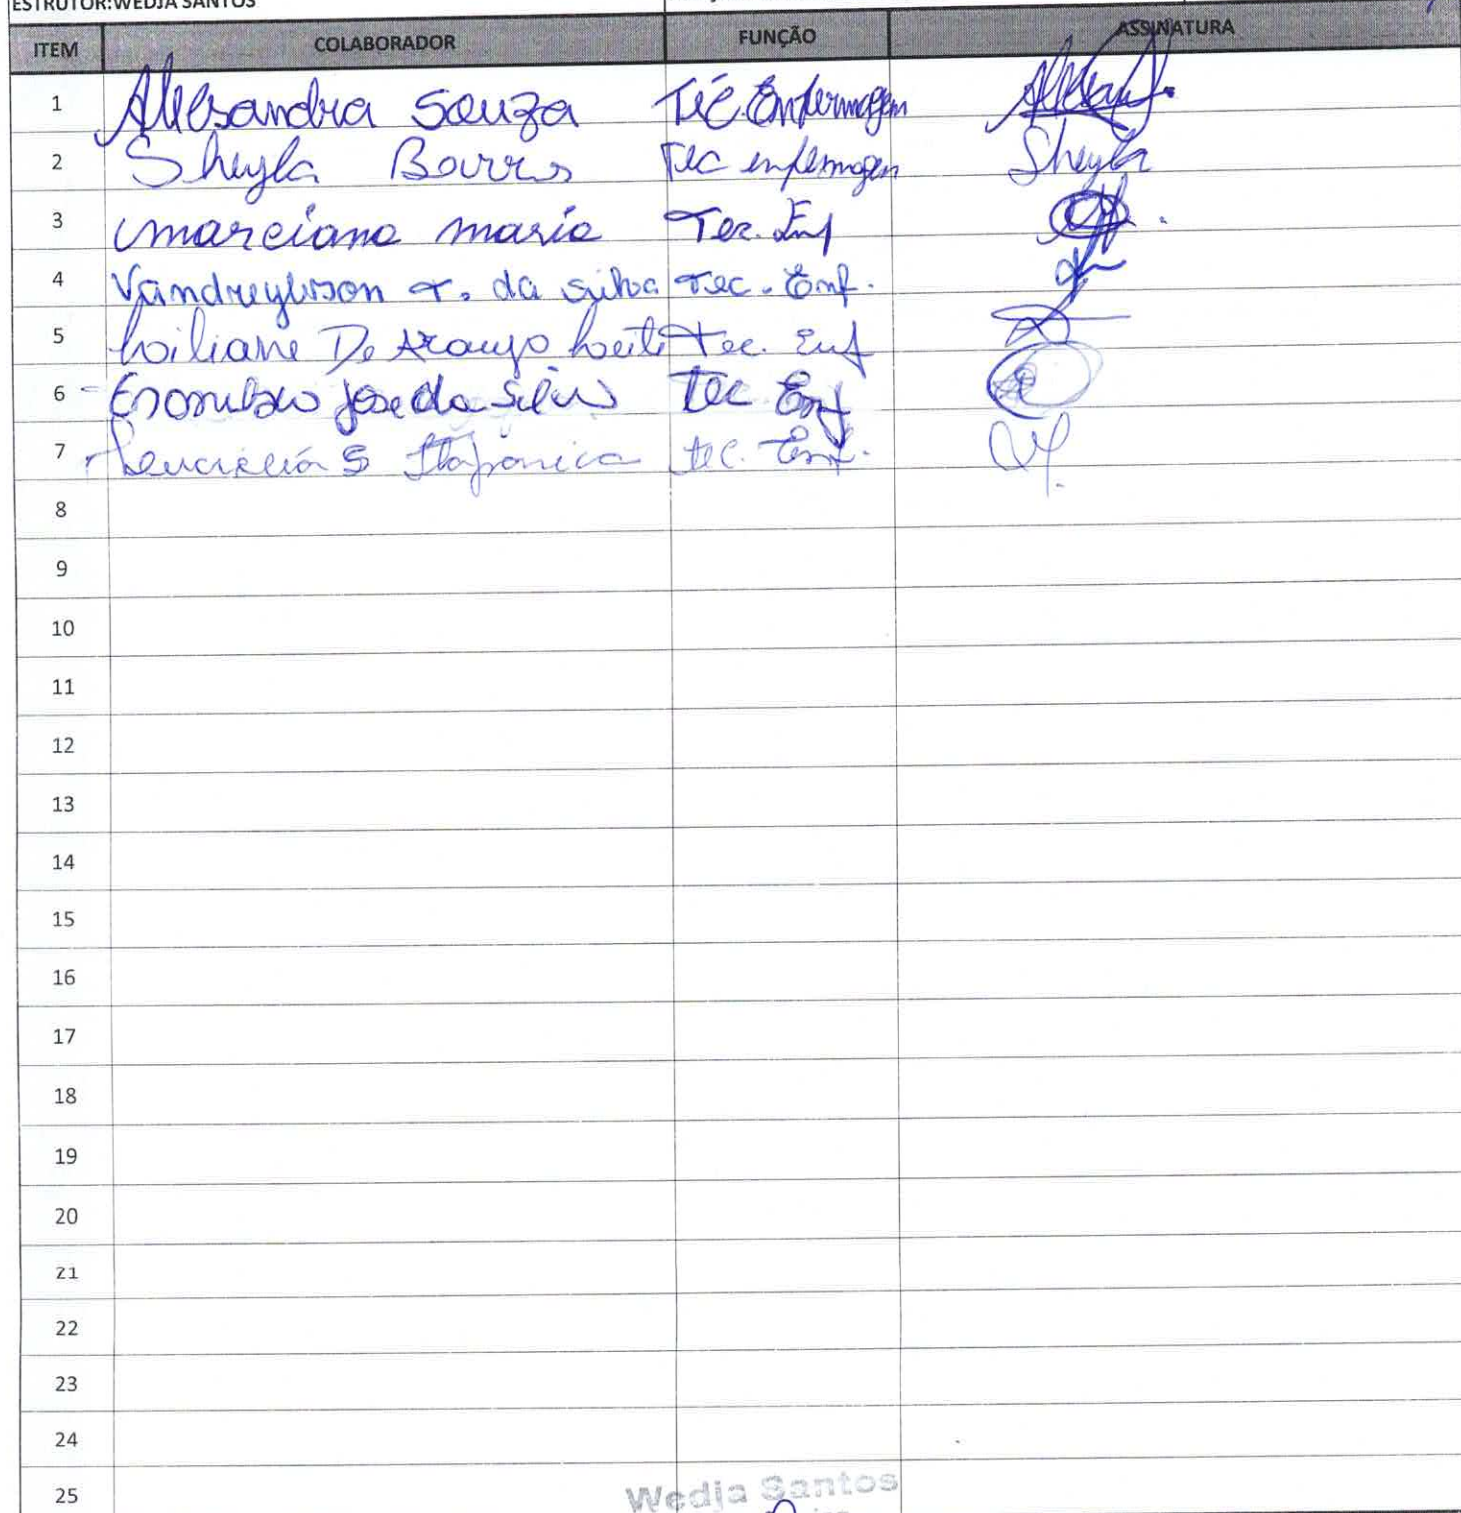 ESTRUTOR:WEDJA SANTOS
ITEM COLABORADOR FUNÇÃO ASSINATURA
1 Alessandra Souza Téc Enfermagem
2 Sheyla Barros Tec enfermagem Sheyla
3 marciana maria Tec. Enf
4 Vandreybson T. da silva Tec. Enf.
5 Loiliane De Araujo Leite Tec. Enf
6 José da Silva Tec Enf
7 S Itaparica tec. Enf.
8
9
10
11
12
13
14
15
16
17
18
19
20
21
22
23
24
25 Wedja Santos